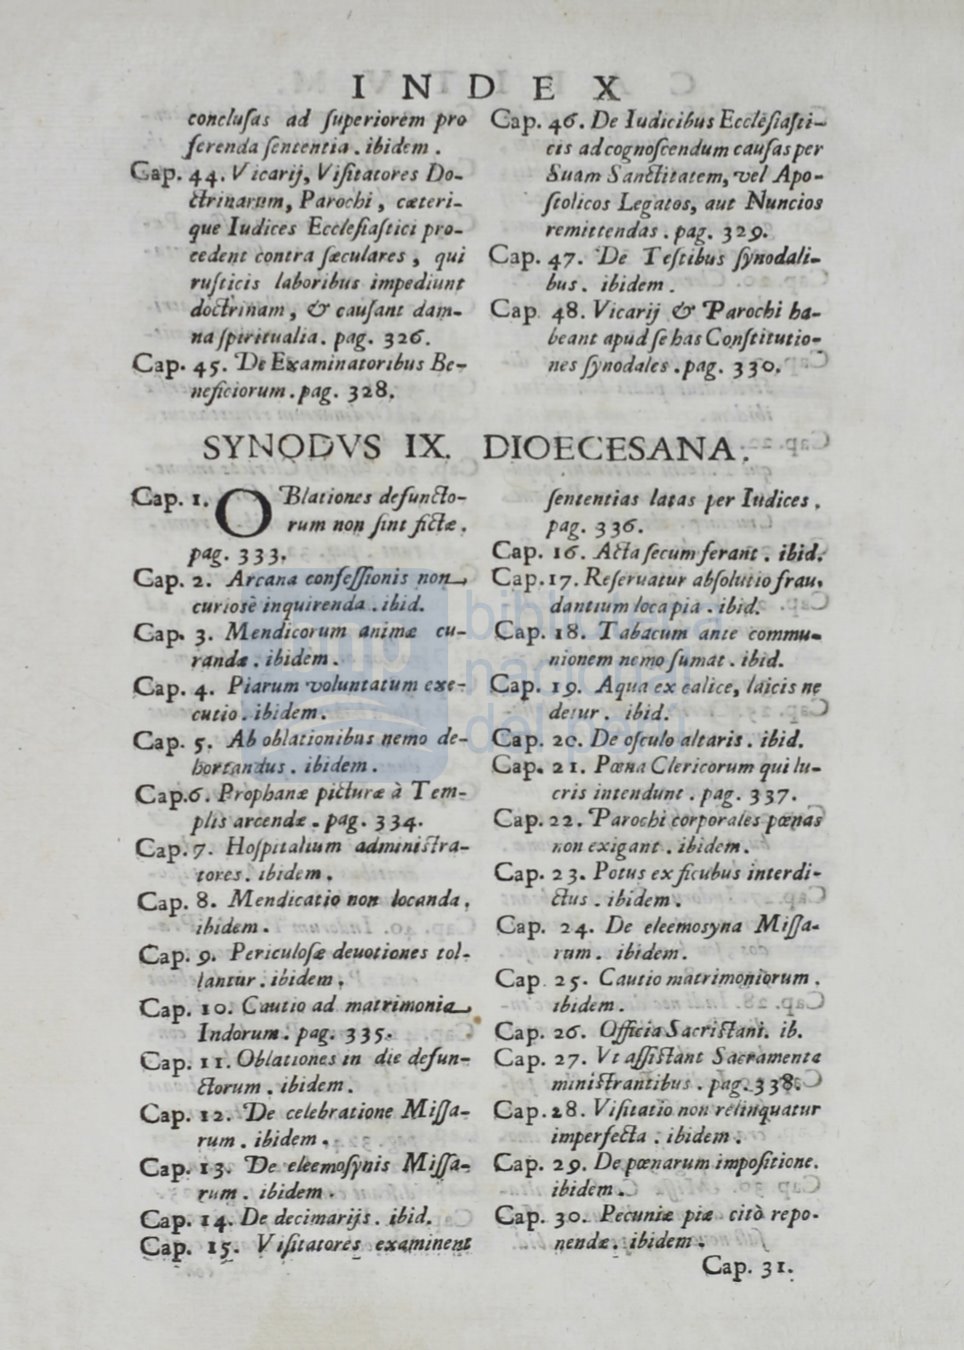 INDEX
conclusas ad superiorem pro
ferenda sententia. ibidem.
Cap. 44. Vicarij, Visitatores Do-
ctrinarum, Parochi, cæteri-
que Iudices Ecclesiastici pro-
cedent contra sæculares, qui
rusticis laboribus impediunt
doctrinam, & causant dam-
na spiritualia. pag. 326.
Cap. 45. De Examinatoribus Be-
neficiorum. pag. 328.
Cap. 46. De Iudicibus Ecclesiasti-
cis ad cognoscendum causas per
Suam Sanctitatem, vel Apo-
stolicos Legatos, aut Nuncios
remittendas. pag. 329.
Cap. 47. De Testibus synodali-
bus. ibidem.
Cap. 48. Vicarij & Parochi ha-
beant apud se has Constitutio-
nes synodales. pag. 330.
SYNODVS IX. DIOECESANA.
Cap. 1. OBlationes defuncto-
rum non sint fictæ.
pag. 333.
Cap. 2. Arcana confessionis non
curiosè inquirenda. ibid.
Cap. 3. Mendicorum animæ cu-
randæ. ibidem.
Cap. 4. Piarum voluntatum exe-
cutio. ibidem.
Cap. 5. Ab oblationibus nemo de-
hortandus. ibidem.
Cap. 6. Prophanæ picturæ à Tem-
plis arcendæ. pag. 334.
Cap. 7. Hospitalium administra-
tores. ibidem.
Cap. 8. Mendicatio non locanda.
ibidem.
Cap. 9. Periculosæ deuotiones tol-
lantur. ibidem.
Cap. 10. Cautio ad matrimonia
Indorum. pag. 335.
Cap. 11. Oblationes in die defun-
ctorum. ibidem.
Cap. 12. De celebratione Missa-
rum. ibidem.
Cap. 13. De eleemosynis Missa-
rum. ibidem.
Cap. 14. De decimarijs. ibid.
Cap. 15. Visitatores examinent
sententias latas per Iudices.
pag. 336.
Cap. 16. Acta secum ferant. ibid.
Cap. 17. Reseruatur absolutio frau-
dantium loca pia. ibid.
Cap. 18. Tabacum ante commu-
nionem nemo sumat. ibid.
Cap. 19. Aqua ex calice, laicis ne
detur. ibid.
Cap. 20. De osculo altaris. ibid.
Cap. 21. Pœna Clericorum qui lu-
cris intendunt. pag. 337.
Cap. 22. Parochi corporales pœnas
non exigant. ibidem.
Cap. 23. Potus ex ficubus interdi-
ctus. ibidem.
Cap. 24. De eleemosyna Missa-
rum. ibidem.
Cap. 25. Cautio matrimoniorum.
ibidem.
Cap. 26. Officia Sacristani. ib.
Cap. 27. Vt assistant Sacramenta
ministrantibus. pag. 338.
Cap. 28. Visitatio non relinquatur
imperfecta. ibidem.
Cap. 29. De pœnarum impositione.
ibidem.
Cap. 30. Pecuniæ piæ citò repo-
nendæ. ibidem.
Cap. 31.
biblioteca
nacional
del perú